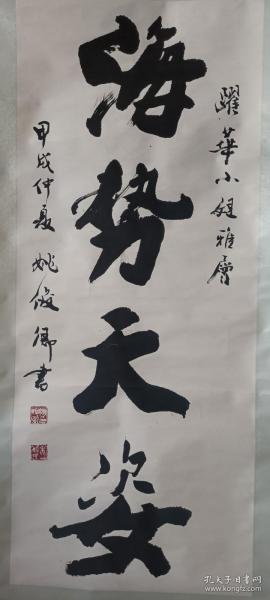 躍華小姐雅属
海势天姿
甲戌仲夏 姚俊卿書
孔夫子旧书网